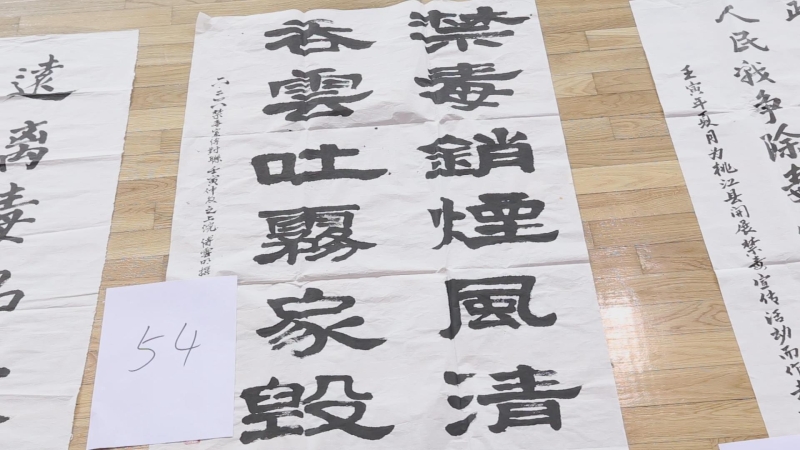 人民戰争除毒
壬寅年夏月为桃江县開展禁毒宣传活动而作
禁毒銷煙風清
吞雲吐霧家毁
六.二六禁毒宣傳對聯壬寅仲夏之上浣
遠离毒品
54